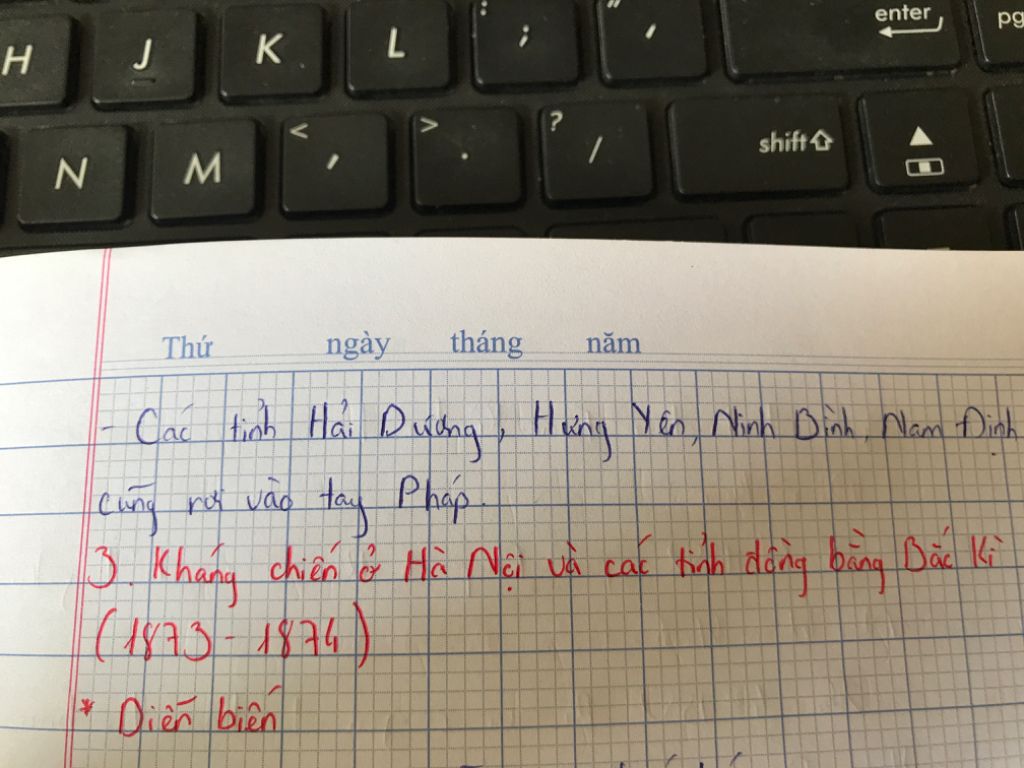 H J K L : ; " ' enter pg
N M < , > . ? / shift
Thứ ngày tháng năm
- Các tỉnh Hải Dương, Hưng Yên, Ninh Bình, Nam Định
cũng rơi vào tay Pháp.
3. Kháng chiến ở Hà Nội và các tỉnh đồng bằng Bắc Kì
(1873 - 1874)
* Diễn biến